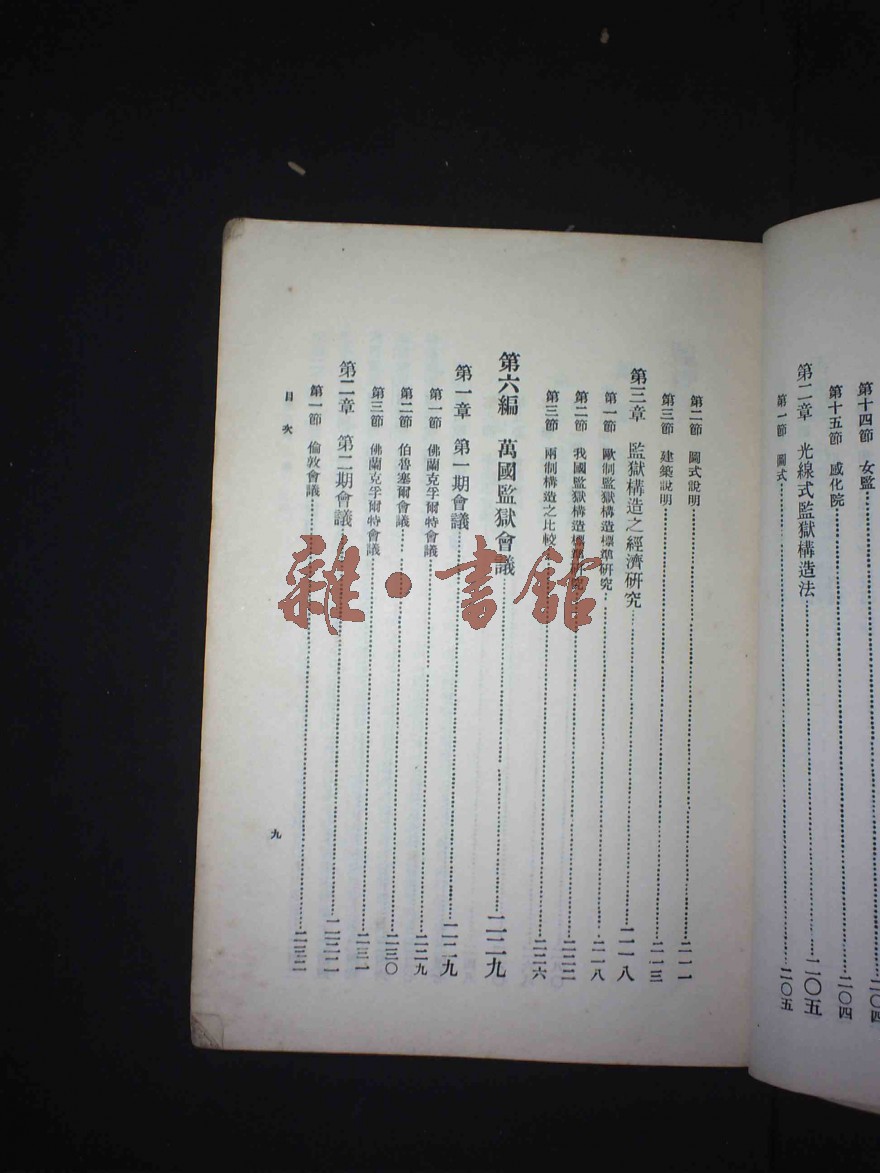 第十四節 女監 二〇四
第十五節 感化院……二〇四
第二章 光線式監獄構造法……二〇五
第一節 圖式……二〇五
第二節 圖式說明……二一一
第三節 建築說明……二一三
第三章 監獄構造之經濟研究……二一八
第一節 歐制監獄構造標準研究……二一八
第二節 我國監獄構造標準研究……二二二
第三節 兩制構造之比較……二二六
第六編 萬國監獄會議……二二九
第一章 第一期會議……二二九
第一節 佛蘭克孚爾特會議……二二九
第二節 伯魯塞爾會議……二三〇
第三節 佛蘭克孚爾特會議……二三一
第二章 第二期會議……二三二
第一節 倫敦會議……二三二
目次 九
雜·書館